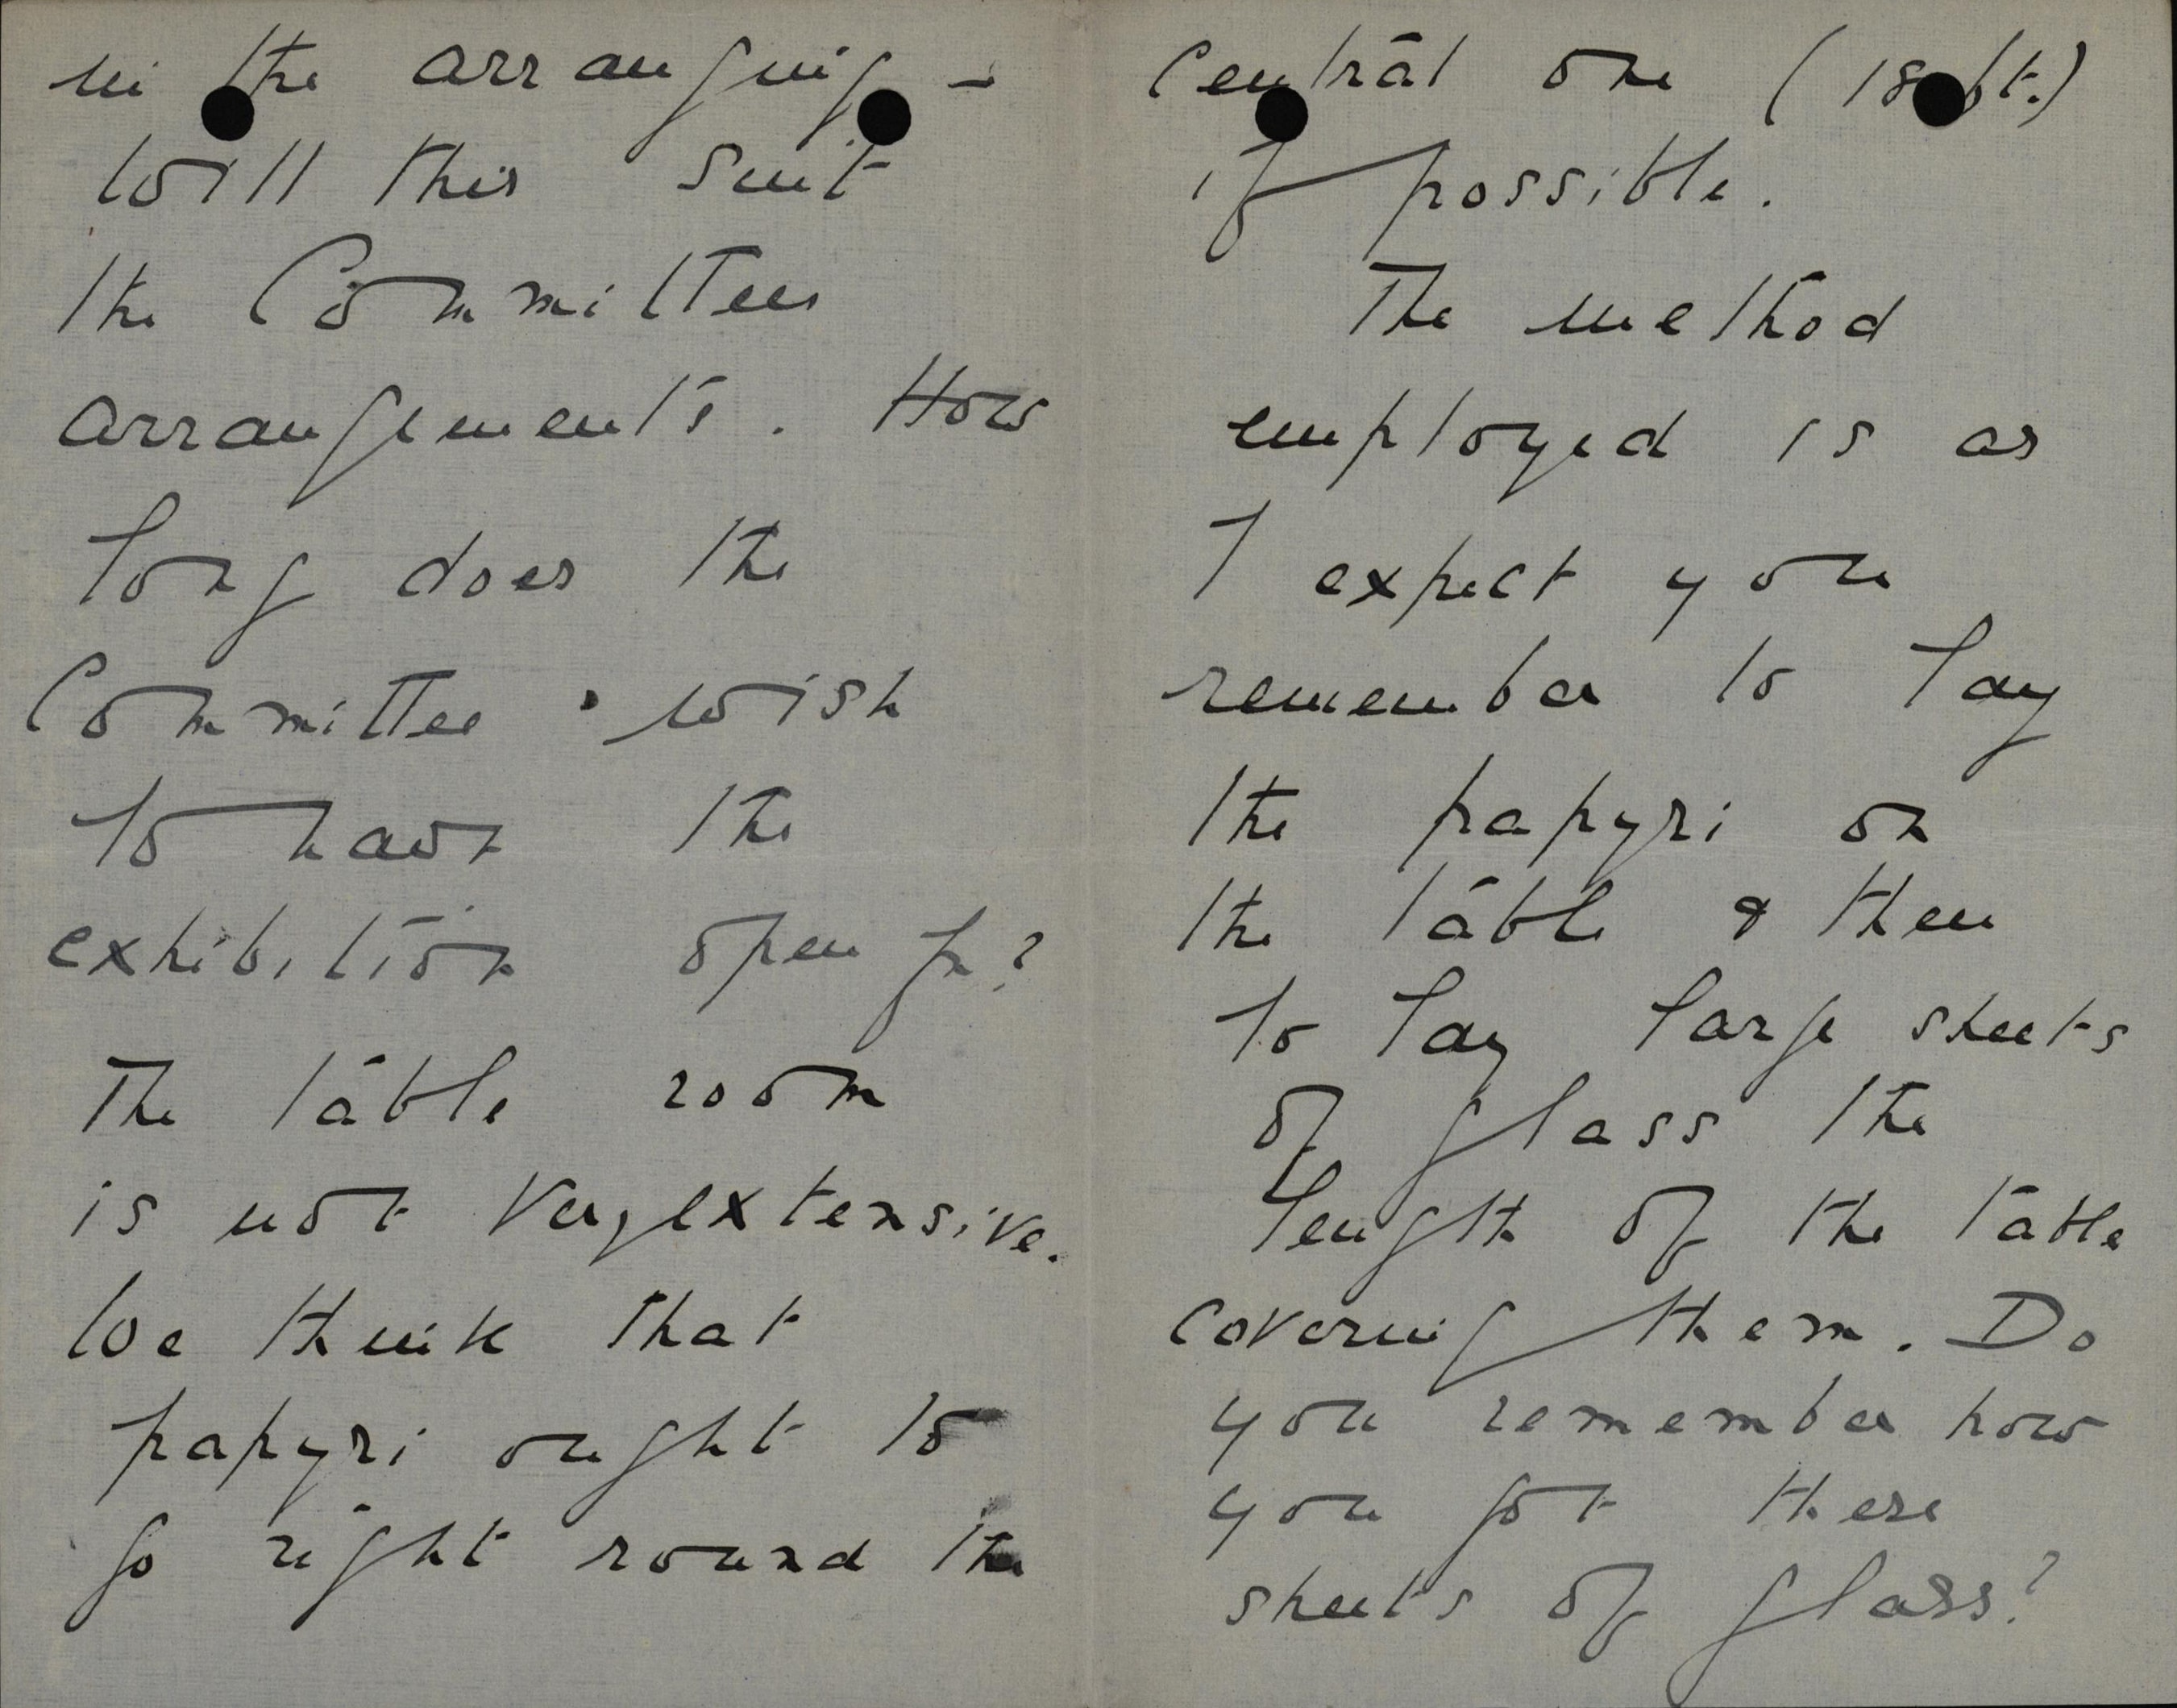 in the arranging –
Will this suit
the Committees
arrangements. How
long does the
Committee wish
to have the
exhibition open for?
The table room
is not very extensive.
We think that
papyri ought to
go right round the
Central one (18 ft.)
if possible.
The method
employed is as
I expect you
remember to lay
the papyri on
the table & then
to lay large sheets
of glass the
lenght of the table
covering them. Do
you remember how
you got these
sheets of glass?